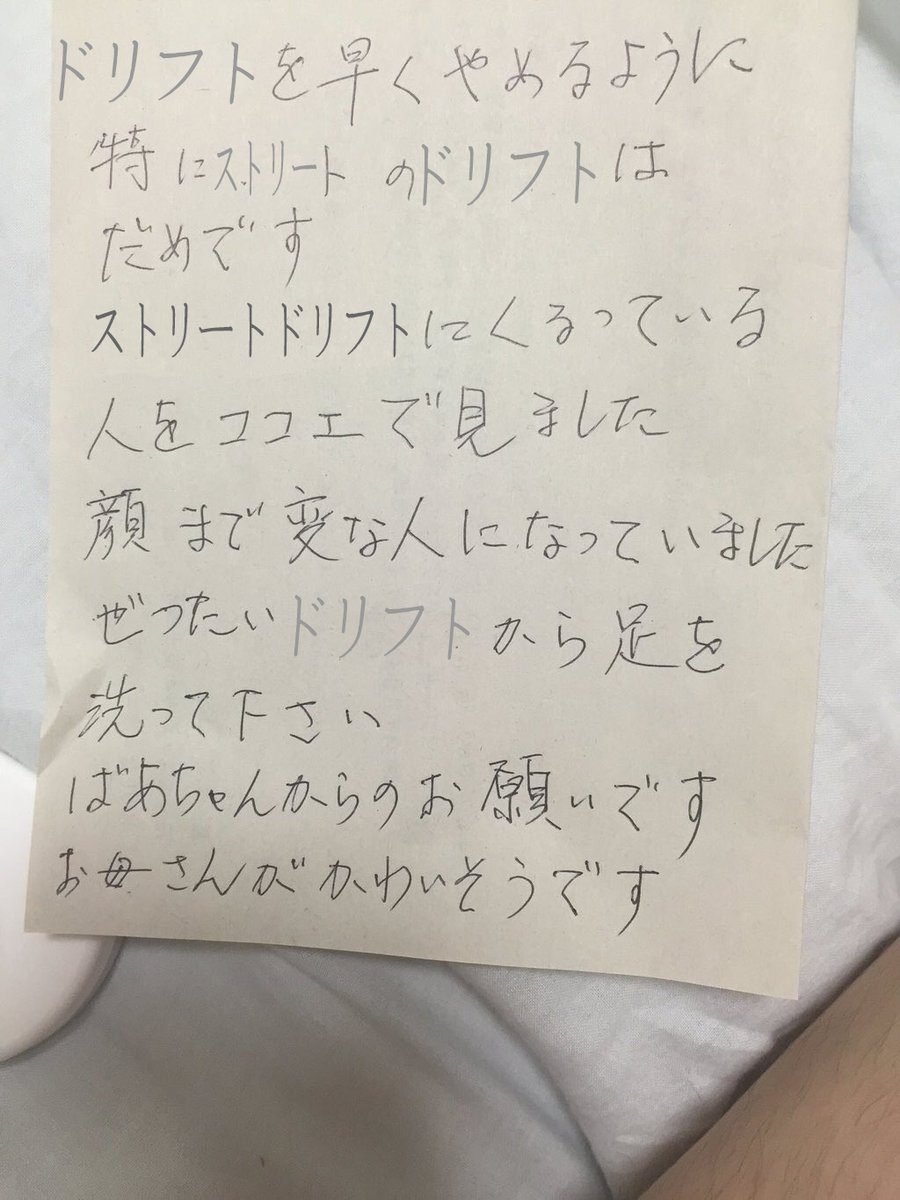 ドリフトを早くやめるように
特にストリートのドリフトは
だめです
ストリートドリフトにくるっている
人をココエで見ました
顔まで変な人になっていました
ぜったいドリフトから足を
洗って下さい
ばあちゃんからのお願いです
お母さんがかわいそうです